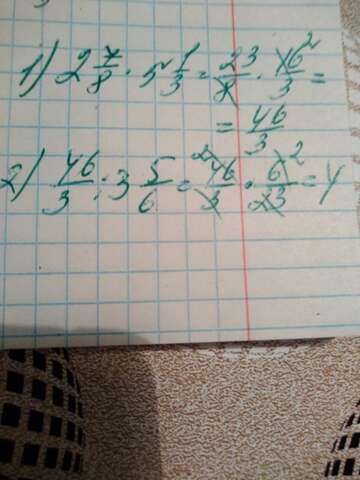 1) 2 7/8 · 5 1/3 = 23/8 · 16/3 2 =
= 46/3
2) 46/3 : 3 5/6 = 2 46/3 · 6/23 2 = 4